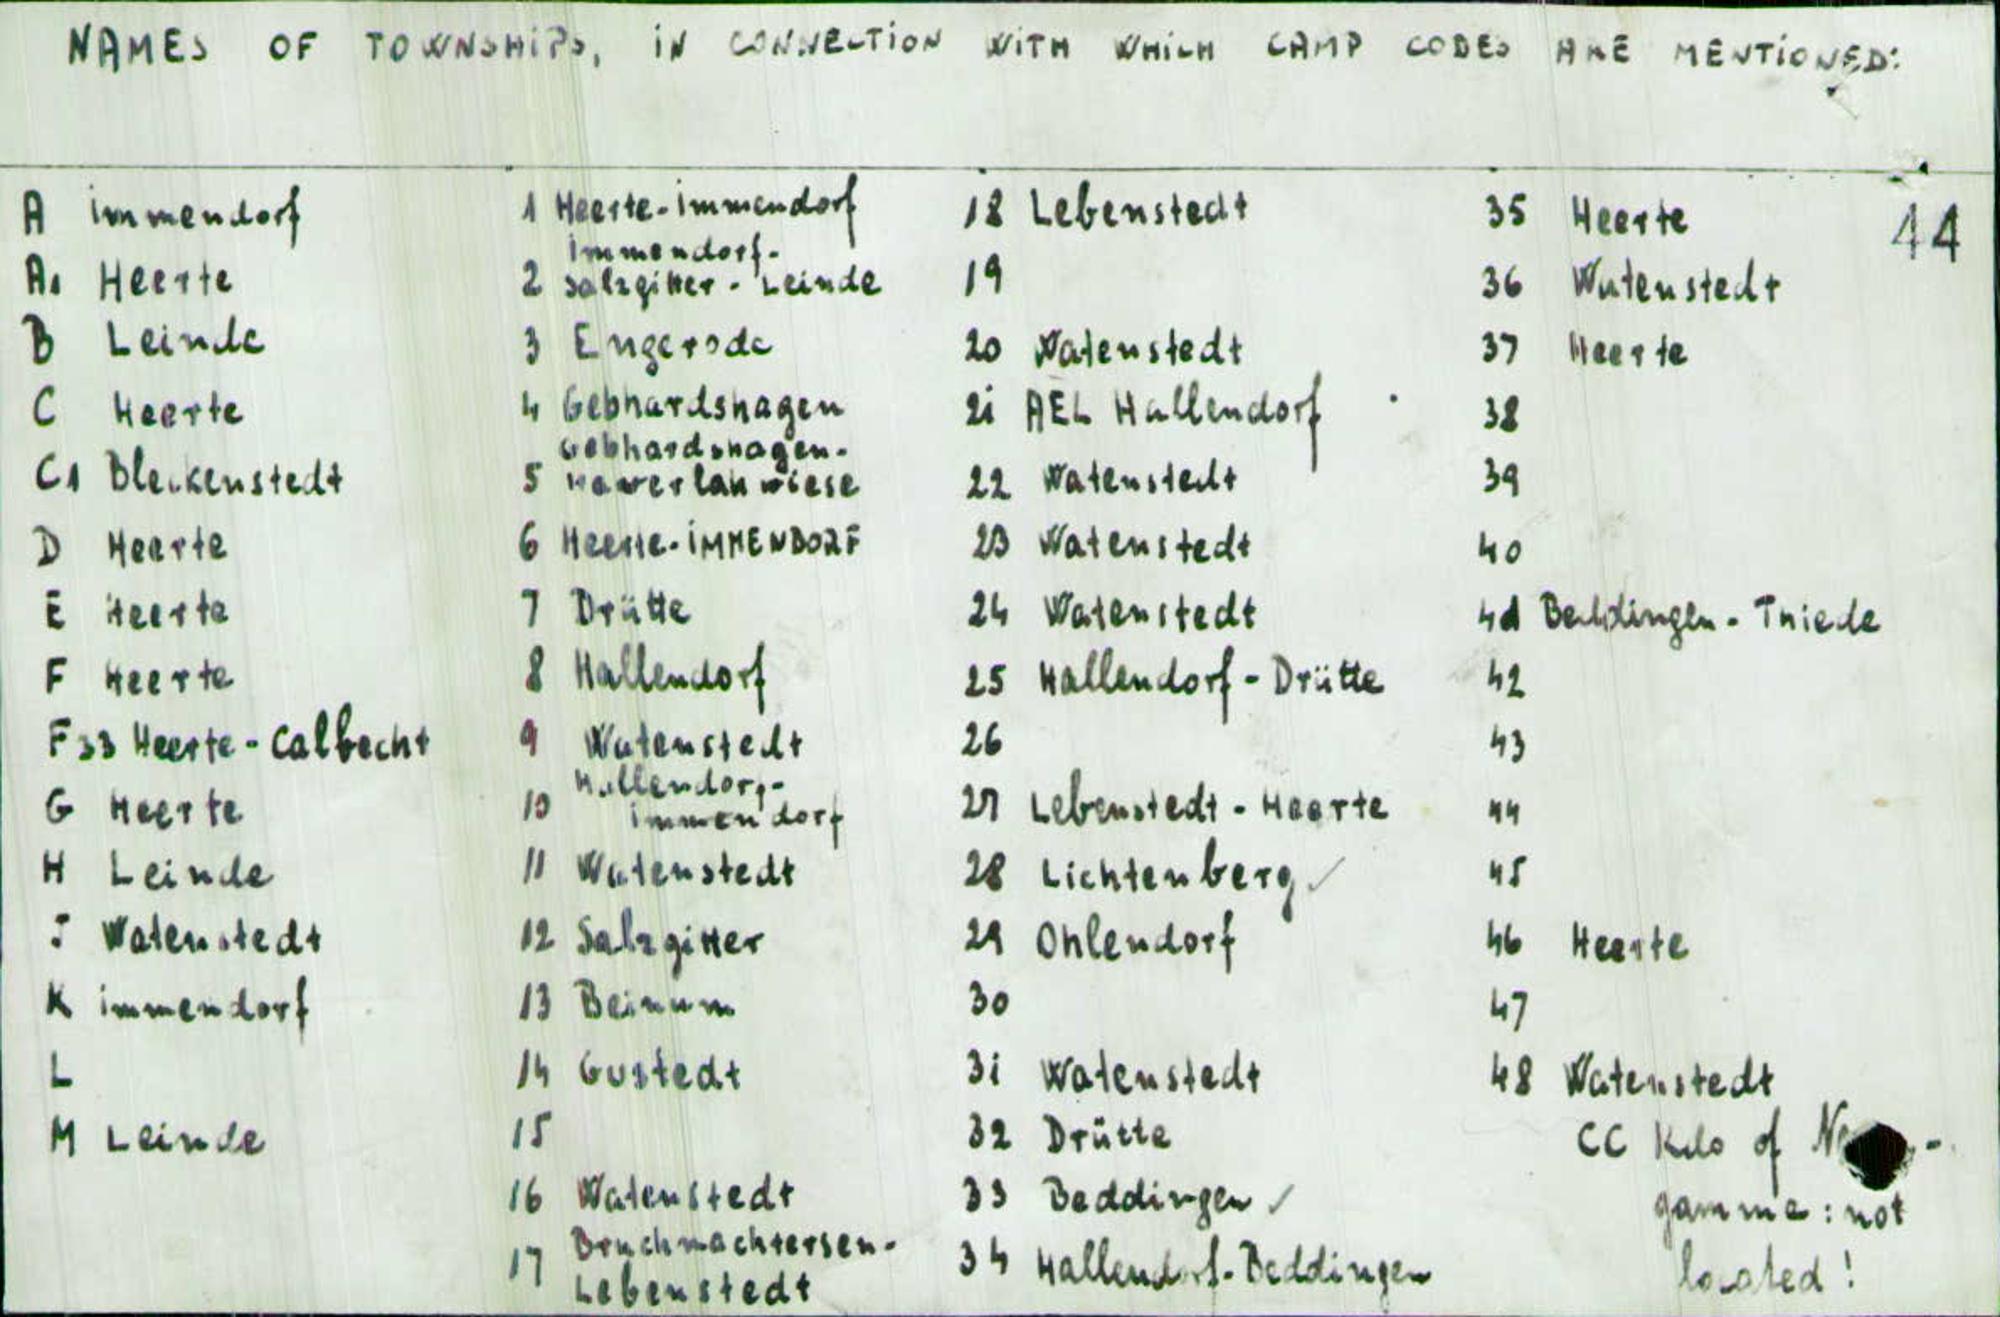 NAMES OF TOWNSHIPS, IN CONNECTION WITH WHICH CAMP CODES ARE MENTIONED:
44
A immendorf
A1 Heerte
B Leinde
C Heerte
C1 Bleckenstedt
D Heerte
E Heerte
F Heerte
F33 Heerte - Calbecht
G Heerte
H Leinde
J Watenstedt
K immendorf
L
M Leinde
1 Heerte-immendorf
immendorf-
2 Salzgitter - Leinde
3 Engerode
4 Gebhardshagen
Gebhardshagen-
5 Haverlahwiese
6 Heerte-IMMENDORF
7 Drütte
8 Hallendorf
9 Watenstedt
Hallendorf-
10 immendorf
11 Watenstedt
12 Salzgitter
13 Beinum
14 Gustedt
15
16 Watenstedt
Bruchmachtersen-
17 Lebenstedt
18 Lebenstedt
19
20 Watenstedt
21 AEL Hallendorf
22 Watenstedt
23 Watenstedt
24 Watenstedt
25 Hallendorf - Drütte
26
27 Lebenstedt - Heerte
28 Lichtenberg ✓
29 Ohlendorf
30
31 Watenstedt
32 Drütte
33 Beddingen ✓
34 Hallendorf-Beddingen
35 Heerte
36 Watenstedt
37 Heerte
38
39
40
41 Beddingen - Thiede
42
43
44
45
46 Heerte
47
48 Watenstedt
CC Kdo of
gamme: not
located!